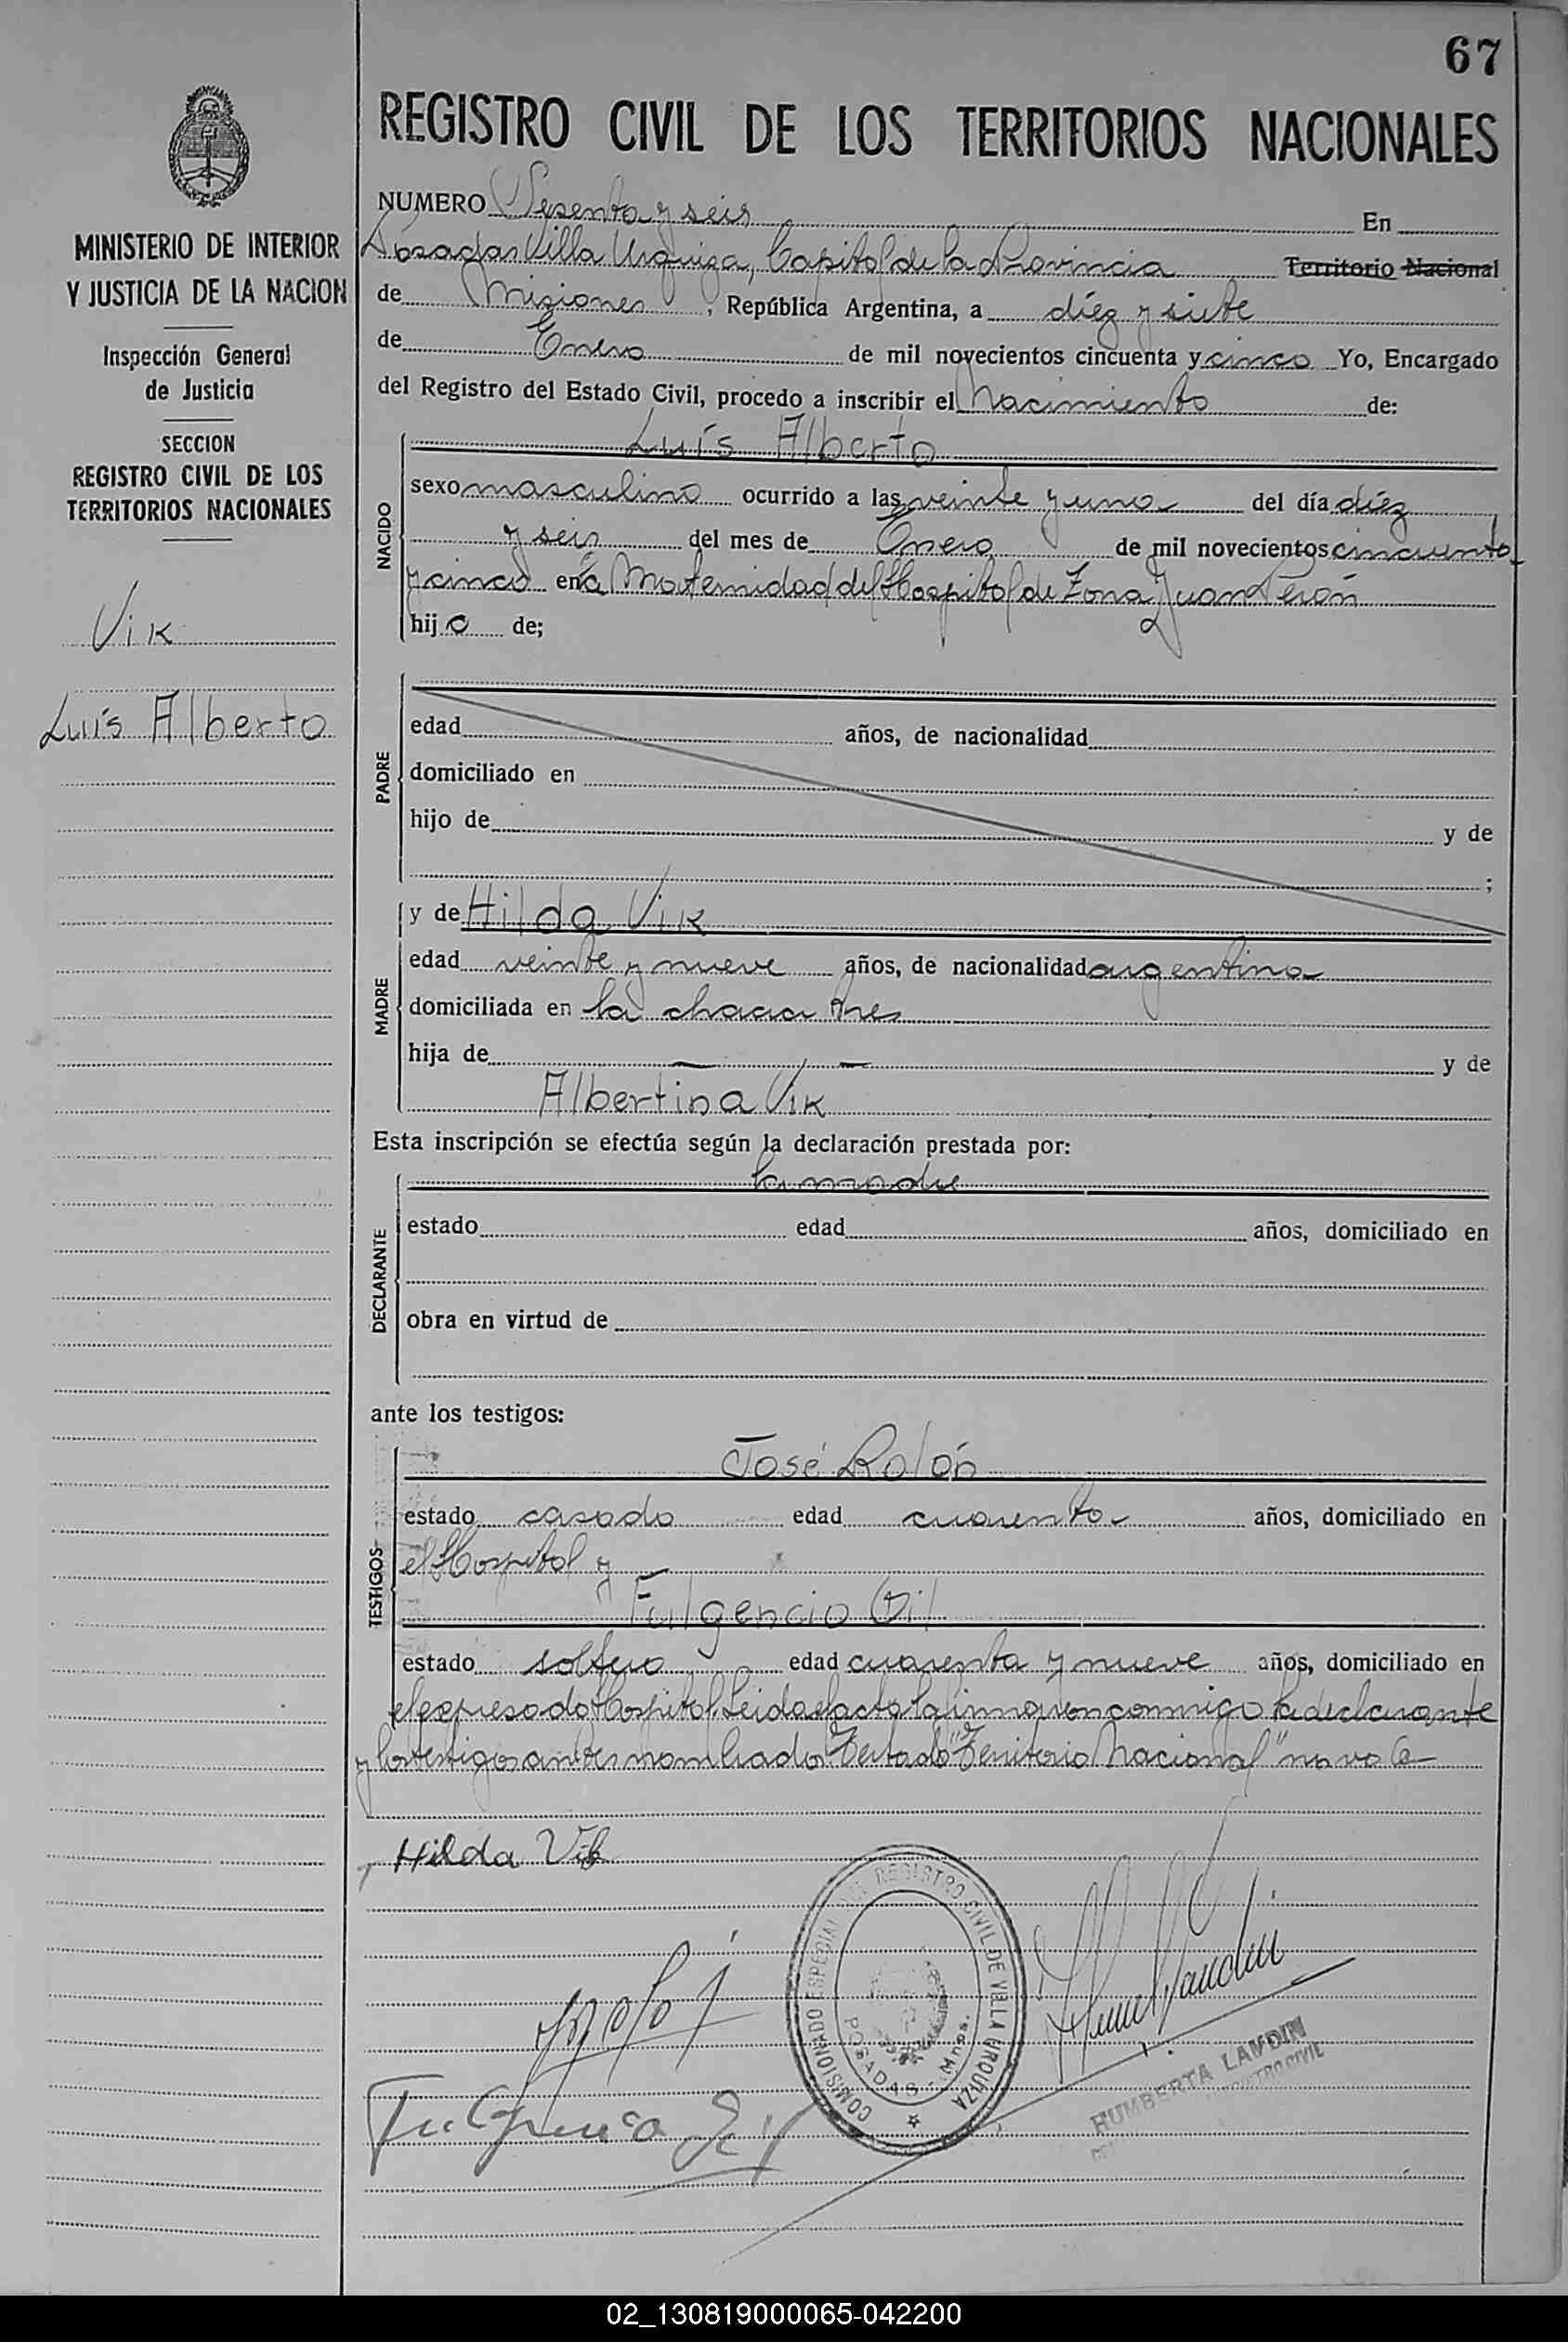 67
REGISTRO CIVIL DE LOS TERRITORIOS NACIONALES
MINISTERIO DE INTERIOR
Y JUSTICIA DE LA NACION
Inspección General
de Justicia
SECCION
REGISTRO CIVIL DE LOS
TERRITORIOS NACIONALES
Vik
Luís Alberto
NUMERO Sesenta y seis En
Posadas Villa Urquiza, Capital de la Provincia Territorio Nacional
de Misiones, República Argentina, a diéz y siete
de Enero de mil novecientos cincuenta y cinco Yo, Encargado
del Registro del Estado Civil, procedo a inscribir el Nacimiento de:
NACIDO
Luís Alberto
sexo masculino ocurrido a las veinte y uno del día diéz
y seis del mes de Enero de mil novecientos cincuenta
y cinco en la Maternidad del Hospital de Zona Juan Perón
hijo de;
PADRE
edad años, de nacionalidad
domiciliado en
hijo de y de
;
MADRE
y de Hilda Vik
edad veinte y nueve años, de nacionalidad argentina
domiciliada en la chacra tres
hija de y de
Albertina Vik
Esta inscripción se efectúa según la declaración prestada por:
DECLARANTE
la madre
estado edad años, domiciliado en
obra en virtud de
ante los testigos:
TESTIGOS
José Rolón
estado casado edad cuarenta años, domiciliado en
el Hospital y
Fulgencio Gil
estado soltero edad cuarenta y nueve años, domiciliado en
el expresado Hospital. Leida el acta la firman conmigo la declarante
y los testigos antes nombrados. Testado "Territorio Nacional" no vale
Hilda Vik
COMISIONADO ESPECIAL REGISTRO CIVIL DE VILLA URQUIZA
POSADAS - Mnes.
Fulgencio Gil
HUMBERTA LANDIN
REGISTRO CIVIL
02_130819000065-042200